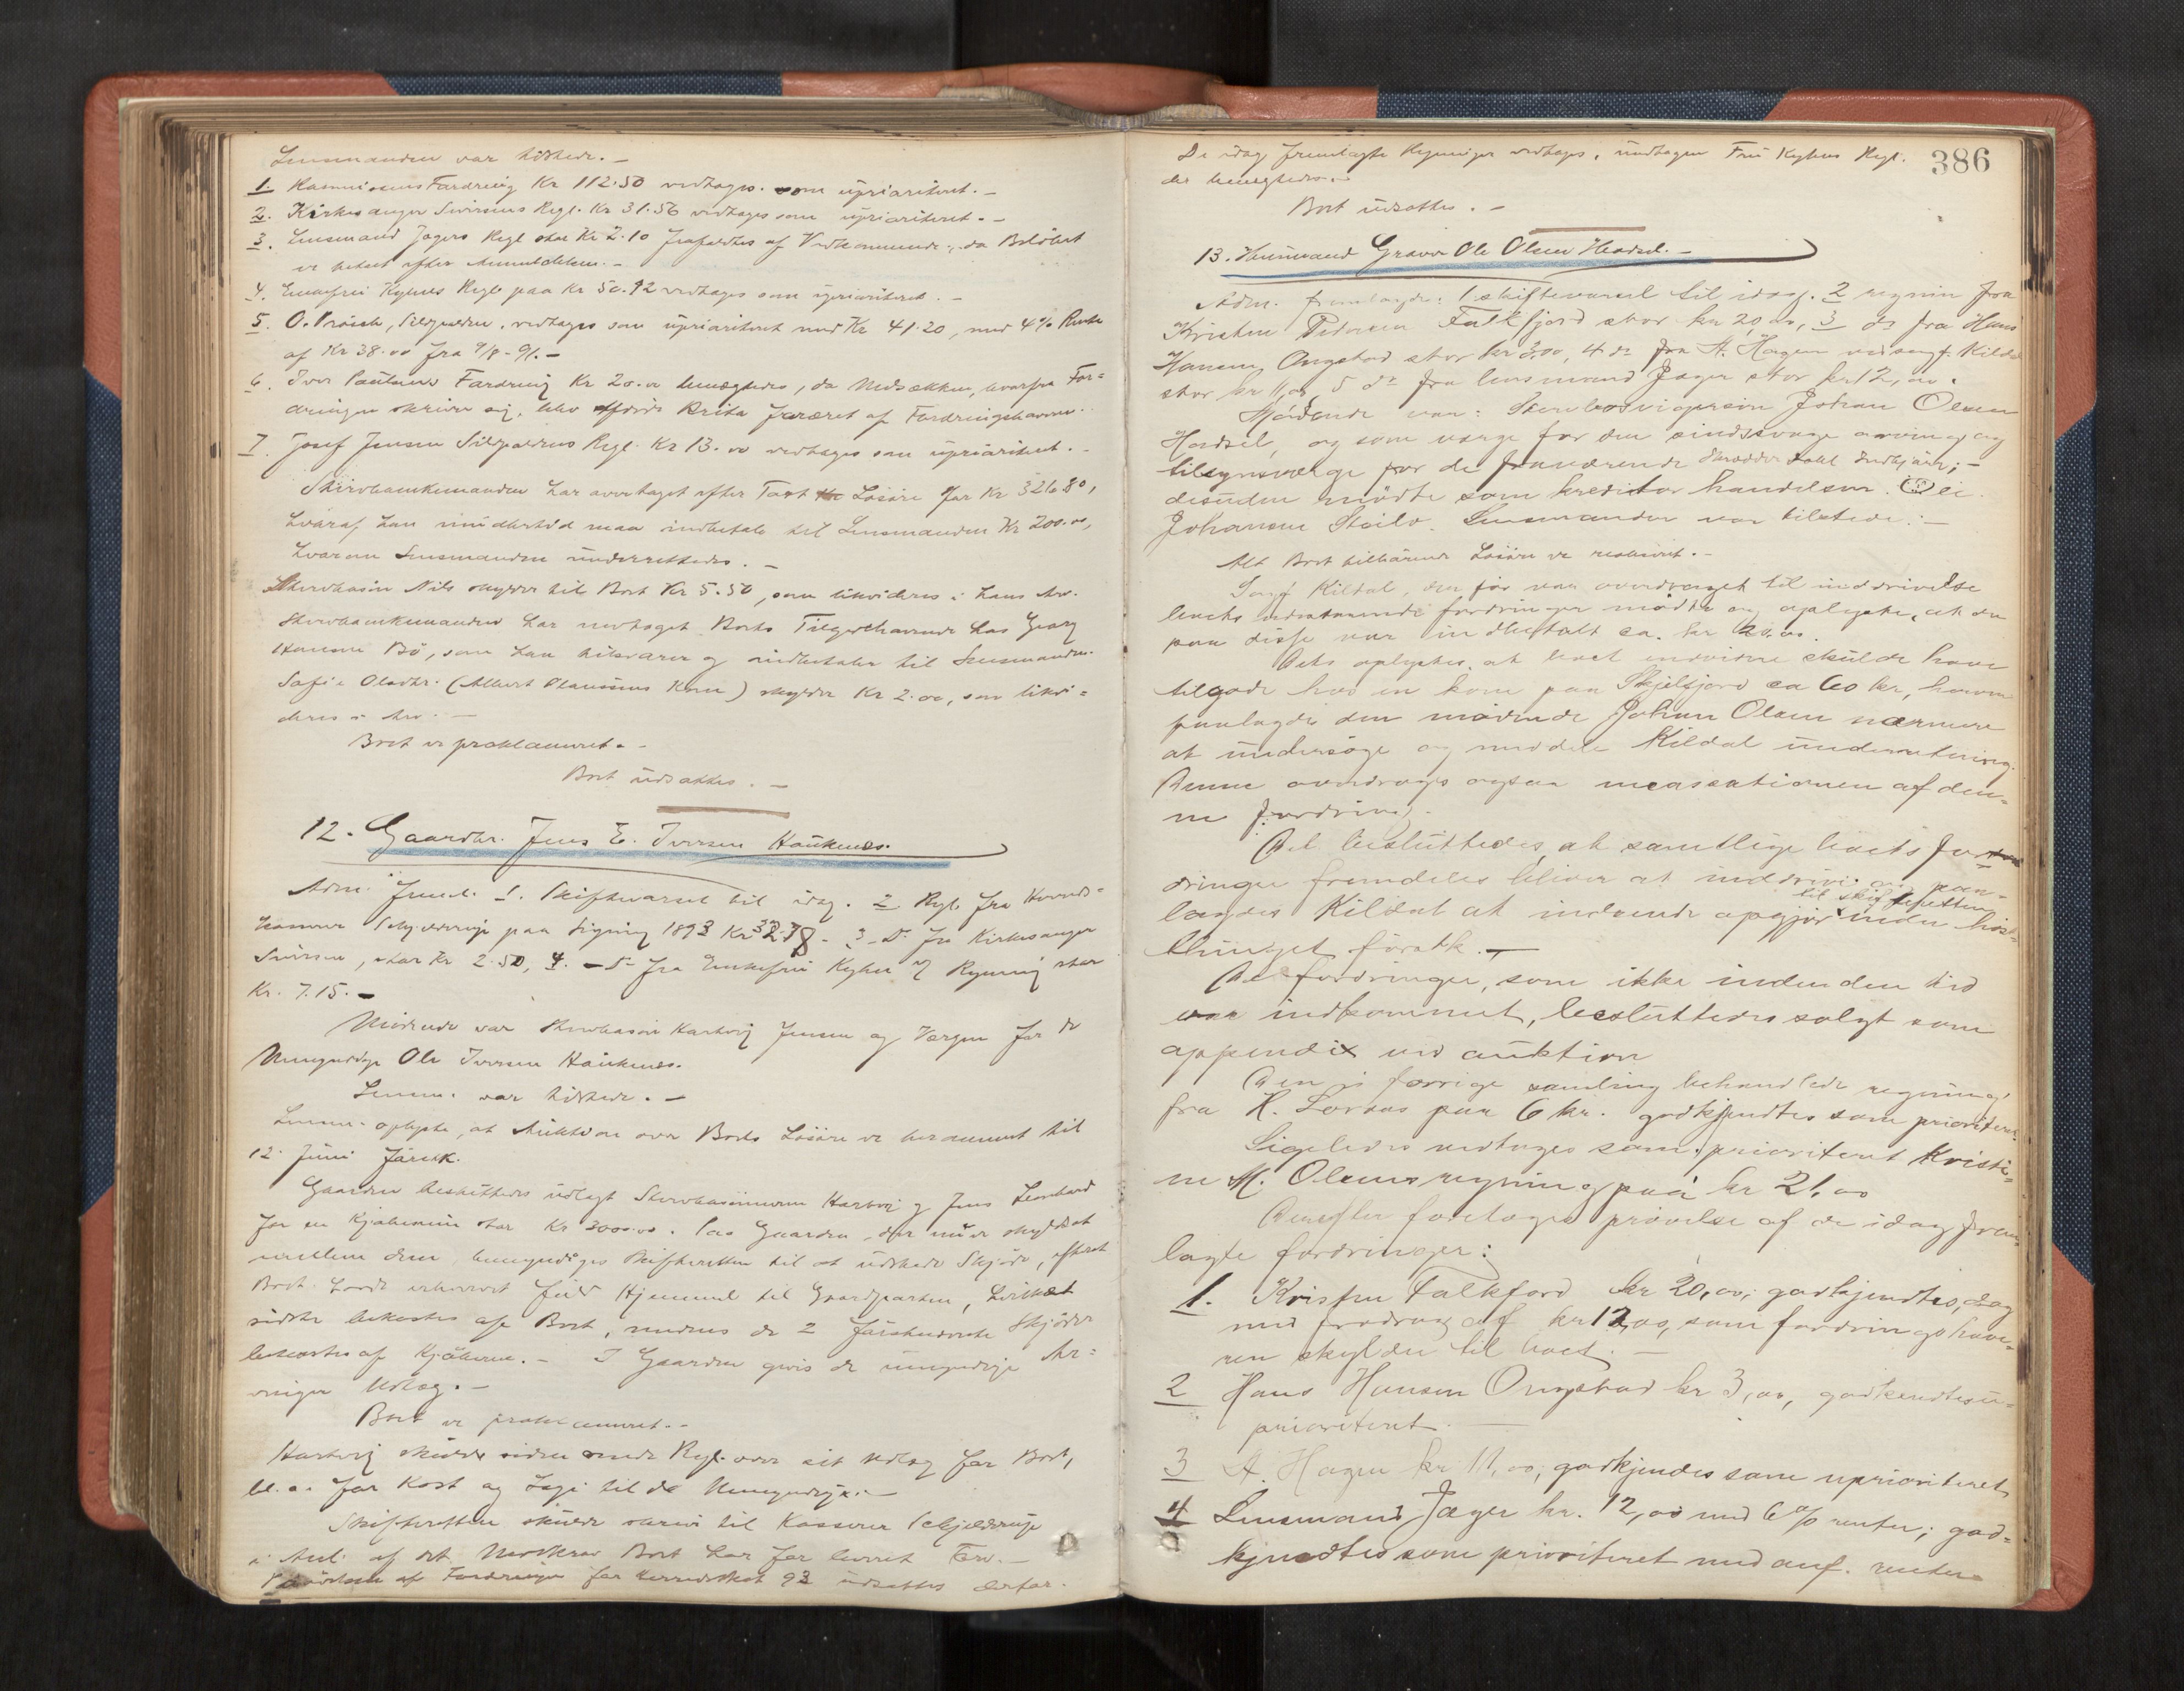 Lensmanden var tilstede. –
1. Rasmussens Fordring Kr 112.50 vedtages som uprioriteret. –
2. Kirkesanger Siversens Regl. Kr 31.56 vedtages som uprioriteret. –
3. Lensmand Jægers Regl stor Kr 2.10 frafaldtes af Vedkommende, da Beløbet
er betalt efter Anmeldelsen. –
4. Enkefru Kyhns Regl paa Kr 50.92 vedtages som uprioriteret. –
5. O. , Sildpolden, vedtages som uprioriteret med Kr 41.20, med 4% Rente
af Kr 38.00 fra 9/8-91. –
6. Iver Paulsens Fordring Kr 20.00 benægtedes, da Nedsækken, hvorfra For=
dringen skriver sig, blev foræret af Fordringshaveren.
7. Josef Jensen Sildpoldens Regl. Kr 13.00 vedtages som uprioriteret. –
Stervboenkemanden har overtaget efter Taxt Løsøre for Kr 326.80,
hvoraf han imidlertid maa indbetale til Lensmanden Kr 200.00,
hvorom Lensmanden underrettedes. –
Stervbosøn Nils skylder til Boet Kr 5.50, som likvideres i hans Arv.
Stervboenkemanden har modtaget Boets Tilgodehavende hos Georg
Hansen Bö, som han tilsvarer og indbetaler til Lensmanden.
Sofie Olsdtr. (Albert Kone) skylder Kr 2.00, som likvi=
deres i Arv. –
Boet er proklameret. –
Boet udsattes. –
12. Gaardbr. Jens E. Iversen Haukenes.
Adm. freml. 1. Skiftevarsel til idag. 2 Regl. fra Herreds=
kasserer Schjelderup paa Ligning 1893 Kr 32.78 – 3 – Do fra Kirkesanger
Siversen, stor Kr 2.50, 4. – Do fra Enkefru Kyhn af Rynning stor
Kr. 7.15. –
Mødende var Stervbosøn Hartvig Jensen og Værgen for de
Umyndige Ole Iversen Haukenes.
Lensm. var tilstede. –
Lensm. oplyste, at Auktion over Boets Løsøre er berammet til
12. Juni førstk.
Gaarden besluttedes udlagt Stervbosønnerne Hartvig og Jens Leonhard
for en Kjøbesum stor Kr 3000.00. Paa Gaarden, der nu er skyldsat
mellem dem, bemyndiges Skifteretten til at udstede Skjøde, efterat
Boet havde erhvervet fuld Hjemmel til Gaardparten, hvilket
sidste bekostes af Boet, medens de 2 førstnævnte Skjøder
bekostes af Kjøberne. – I Gaarden gives de umyndige Ar=
vinger Udlæg. –
Boet er proklameret. –
Hartvig skulde siden sende Regl. over sit Udlæg for Boet,
bl. a. for Kost og Logi til de Umyndige. –
Skifteretten skulde skrive til Kasserer Schjelderup
i Anl. af det Boet har for leveret Torv. –
Prøvelsen af Fordringen for Herredsskat 93 udsattes derfor.
De idag fremlagte Regninger vedtages, undtagen Fru Kyhns Regl.
der benægtedes. –
Boet udsattes. –
386
13. Husmand Graver Ole Olsen Hadsel. –
Adm. fremlagde: 1 skiftevarsel til idag. 2 regnin fra
Kristen Pedersen Falkfjord stor kr 20,00, 3 do fra Hans
Hansen Ongstad stor kr 3,00, 4 do fra A. Hagen ved sagf. Kildal
stor kr 11,00 5 do fra lensmand Jæger stor kr 12,00.
Mødende var: Stervbosvigersøn Johan Olsen
Hadsel, og som værge for den sindssvage arving og
tilsynsværge for de fraværende Skrædder ;–
desuden mødte som kreditor handelsm. Ole
Johansen Stoilo. Lensmanden var tilstede. –
Alt Boet tilhørende Løsøre er realiseret. –
Sagf Kildal, der før var overdraget til inddrivelse
boets udestaaende fordringer mødte og oplyste, at der
paa disse var indbetalt ca. kr 20.00.
Dets oplystes, at boet endvidere skulde have
tilgode hos en kone paa Skjelfjord ca 60 kr, hvorom
paalagdes den mødende Johan Olsen nærmere
at undersøge og meddele Kildal underretning.
Denne overdroges ogsaa incassationen af den=
ne fordring.
Det besluttedes, at samtlige boets for
dringer fremdeles bliver at inddrive og paa=
lagdes Kildal at indsende opgjør til skifteretten inden høst=
thinget førstk. –
De fordringer, som ikke inden den tid
var indkommet, besluttedes solgt som
appendix ved auktion
Den i forrige samling behandlede regning
fra K. Lornes paa 6 kr. godkjendtes som prioriteret.
Ligeledes vedtages som prioriteret Kristi=
ne M. Olsens regning paa kr 21,00
Derefter foretoges prøvelse af de idag frem=
lagte fordringer:
1. Kristen Falkfjord kr 20,00, godkjendtes, dog
med fradrag af kr 12,00, som fordringshave=
ren skylder til boet. –
2 Hans Hansen Ongstad kr 3,00, godkendtes u=
prioriteret. –
3 A. Hagen kr 11,00, godkjendes som uprioriteret
4 Lensmand Jæger kr. 12,00 med 6% renter; god=
kjendtes som prioriteret med anf. renter